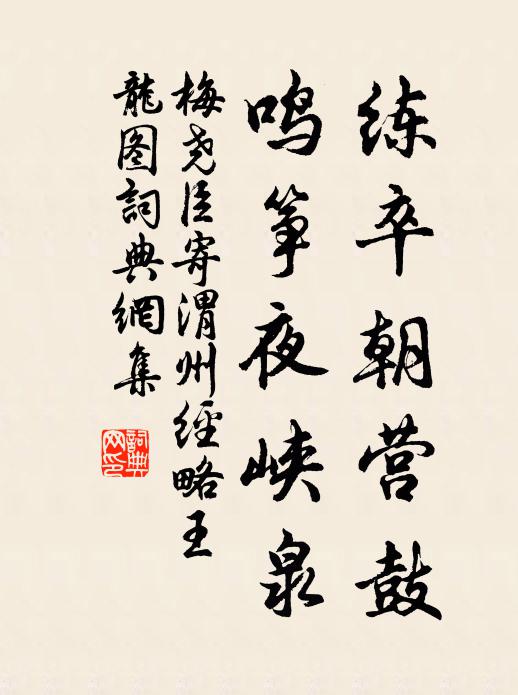 练卒朝营鼓
鸣筝夜峡泉
梅尧臣寄渭州经略王
龍图詞典網集
詞典
网印